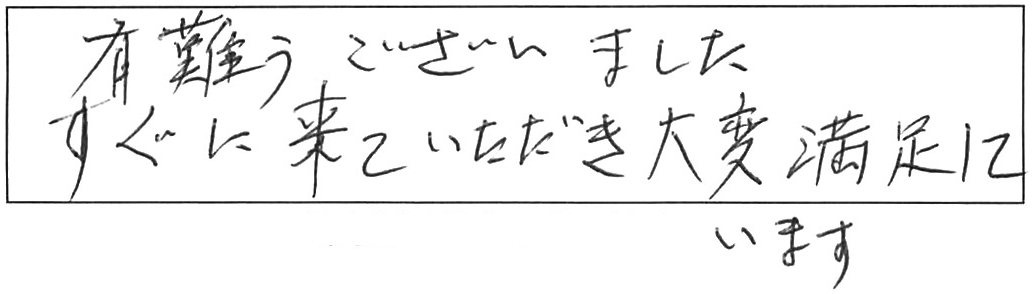 有難うございました
すぐに来ていただき大変満足に
います